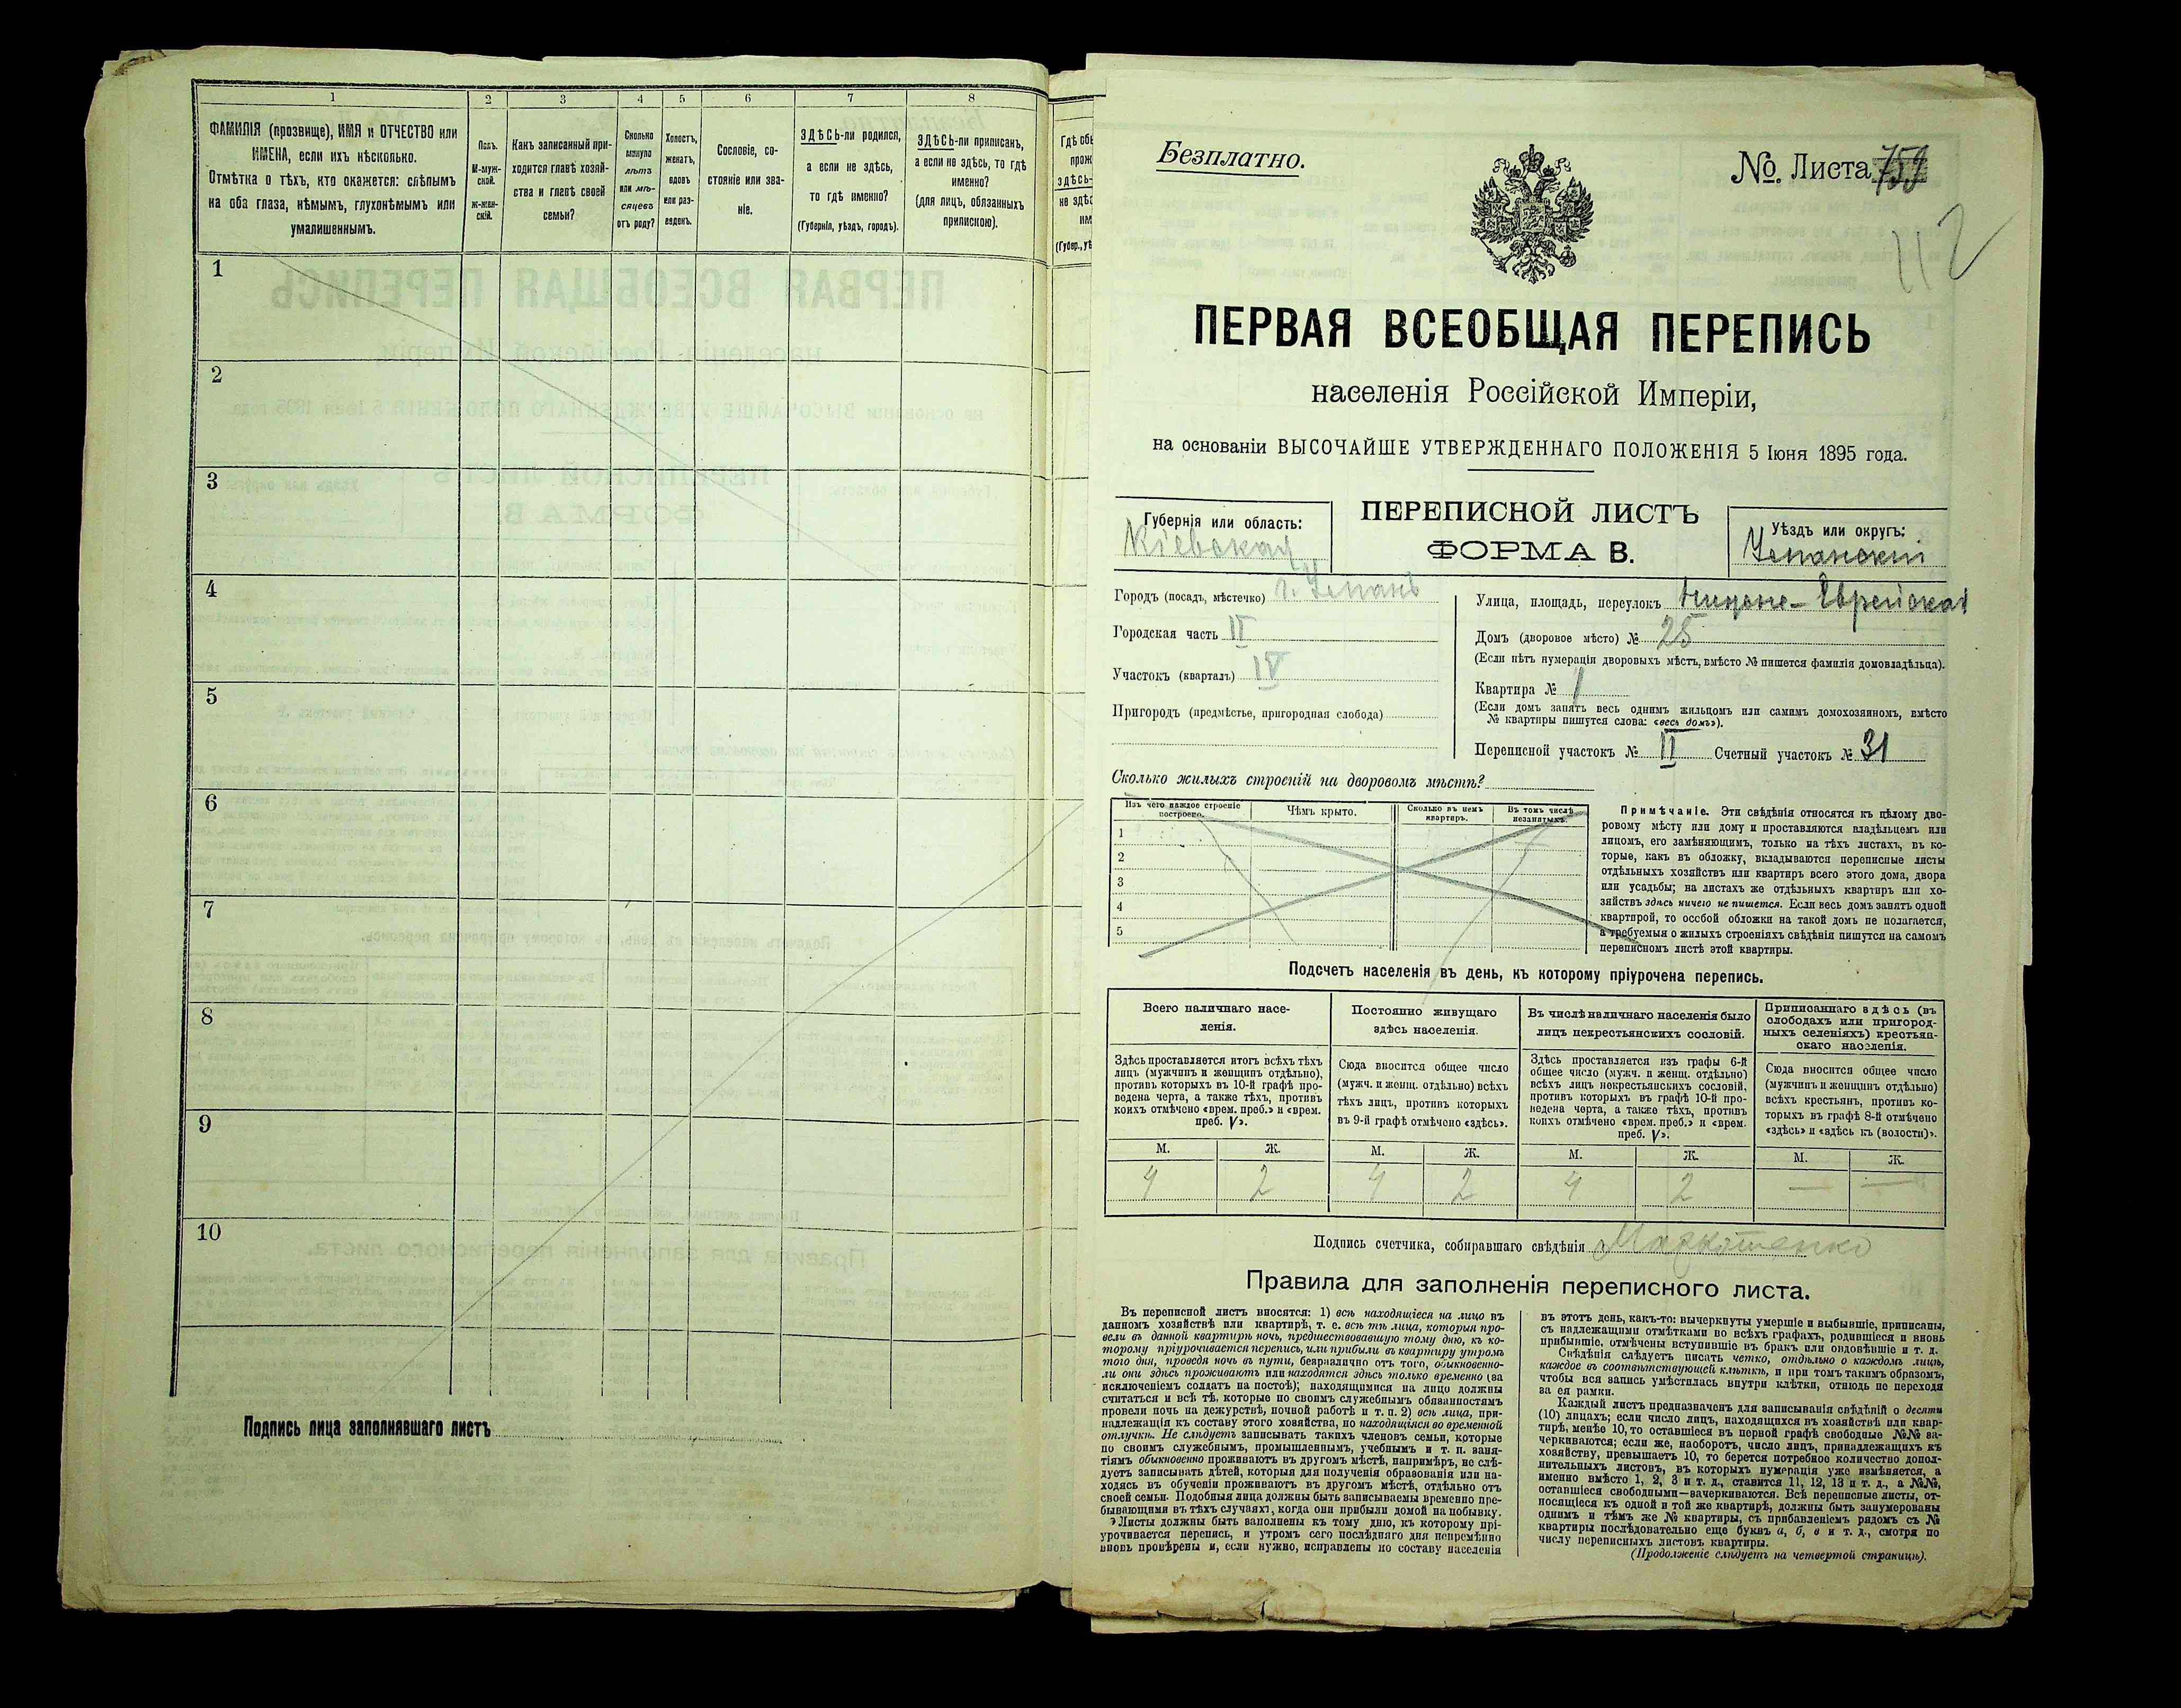 1 2 3 4 5 6 7 8
ФАМИЛІЯ (прозвище), ИМЯ и ОТЧЕСТВО или
ИМЕНА, если ихъ нѣсколько.
Отмѣтка о тѣхъ, кто окажется: слѣпымъ
на оба глаза, нѣмымъ, глухонѣмымъ или
умалишеннымъ.
Полъ.
М-муж-
ской.
Ж-жен-
скій.
Какъ записанный при-
ходится главѣ хозяй-
ства и главѣ своей
семьи?
Сколько
минуло
лѣтъ
или мѣ-
сяцевъ
отъ роду?
Холостъ,
женатъ,
вдовъ
или раз-
веденъ.
Сословіе, со-
стояніе или зва-
ніе.
ЗДѢСЬ-ли родился,
а если не здѣсь,
то гдѣ именно?
(Губернія, уѣздъ, городъ).
ЗДѢСЬ-ли приписанъ,
а если не здѣсь, то гдѣ
именно?
(для лицъ, обязанныхъ
припискою).
1
2
3
4
5
6
7
8
9
10
Подпись лица заполнявшаго листъ
Безплатно.
№ Листа 759
112
ПЕРВАЯ ВСЕОБЩАЯ ПЕРЕПИСЬ
населенія Россійской Имперіи,
на основаніи ВЫСОЧАЙШЕ УТВЕРЖДЕННАГО ПОЛОЖЕНІЯ 5 Іюня 1895 года.
Губернія или область:
Кіевская
ПЕРЕПИСНОЙ ЛИСТЪ
ФОРМА В.
Уѣздъ или округъ:
Уманскій
Городъ (посадъ, мѣстечко) г. Умань
Городская часть II
Участокъ (кварталъ) IV
Пригородъ (предмѣстье, пригородная слобода)
Улица, площадь, переулокъ Нижне-Еврейская
Домъ (дворовое мѣсто) № 25
(Если нѣтъ нумераціи дворовыхъ мѣстъ, вмѣсто № пишется фамилія домовладѣльца).
Квартира № 1
(Если домъ занятъ весь однимъ жильцомъ или самимъ домохозяиномъ, вмѣсто
№ квартиры пишутся слова: «весь домъ»).
Переписной участокъ № II Счетный участокъ № 31
Сколько жилыхъ строеній на дворовомъ мѣстѣ?
Изъ чего каждое строеніе
построено.
Чѣмъ крыто.
Сколько въ немъ
квартиръ.
Въ томъ числѣ
незанятыхъ.
1
2
3
4
5
Примѣчаніе. Эти свѣдѣнія относятся къ цѣлому дво-
ровому мѣсту или дому и проставляются владѣльцемъ или
лицомъ, его замѣняющимъ, только на тѣхъ листахъ, въ ко-
торые, какъ въ обложку, вкладываются переписные листы
отдѣльныхъ хозяйствъ или квартиръ всего этого дома, двора
или усадьбы; на листахъ же отдѣльныхъ квартиръ или хо-
зяйствъ здѣсь ничего не пишется. Если весь домъ занятъ одной
квартирой, то особой обложки на такой домъ не полагается,
а требуемыя о жилыхъ строеніяхъ свѣдѣнія пишутся на самомъ
переписномъ листѣ этой квартиры.
Подсчетъ населенія въ день, къ которому пріурочена перепись.
Всего наличнаго насе-
ленія.
Здѣсь проставляется итогъ всѣхъ тѣхъ
лицъ (мужчинъ и женщинъ отдѣльно),
противъ которыхъ въ 10-й графѣ про-
ведена черта, а также тѣхъ, противъ
коихъ отмѣчено «врем. преб.» и «врем.
преб. V».
Постоянно живущаго
здѣсь населенія.
Сюда вносится общее число
(мужч. и женщ. отдѣльно) всѣхъ
тѣхъ лицъ, противъ которыхъ
въ 9-й графѣ отмѣчено «здѣсь».
Въ числѣ наличнаго населенія было
лицъ некрестьянскихъ сословій.
Здѣсь проставляется изъ графы 6-й
общее число (мужч. и женщ. отдѣльно)
всѣхъ лицъ некрестьянскихъ сословій,
противъ которыхъ въ графѣ 10-й про-
ведена черта, а также тѣхъ, противъ
коихъ отмѣчено «врем. преб.» и «врем.
преб. V».
Приписаннаго здѣсь (въ
слободахъ или пригород-
ныхъ селеніяхъ) крестьян-
скаго населенія.
Сюда вносится общее число
(мужчинъ и женщинъ отдѣльно)
всѣхъ крестьянъ, противъ ко-
торыхъ въ графѣ 8-й отмѣчено
«здѣсь» и «здѣсь къ (волости)».
М. Ж. М. Ж. М. Ж. М. Ж.
4 2 4 2 4 2 — —
Подпись счетчика, собиравшаго свѣдѣнія
Правила для заполненія переписного листа.
Въ переписной листъ вносятся: 1) всѣ находящіеся на лицо въ
данномъ хозяйствѣ или квартирѣ, т. е. всѣ тѣ лица, которыя про-
вели въ данной квартирѣ ночь, предшествовавшую тому дню, къ ко-
торому пріурочивается перепись, или прибыли въ квартиру утромъ
того дня, проведя ночь въ пути, безразлично отъ того, обыкновенно-
ли они здѣсь проживаютъ или находятся здѣсь только временно (за
исключеніемъ солдатъ на постоѣ); находящимися на лицо должны
считаться и всѣ тѣ, которые по своимъ служебнымъ обязанностямъ
провели ночь на дежурствѣ, ночной работѣ и т. п. 2) всѣ лица, при-
надлежащія къ составу этого хозяйства, но находящіяся во временной
отлучкѣ. Не слѣдуетъ записывать такихъ членовъ семьи, которые
по своимъ служебнымъ, промышленнымъ, учебнымъ и т. п. заня-
тіямъ обыкновенно проживаютъ въ другомъ мѣстѣ, напримѣръ, не слѣ-
дуетъ записывать дѣтей, которыя для полученія образованія или на-
ходясь въ обученіи проживаютъ въ другомъ мѣстѣ, отдѣльно отъ
своей семьи. Подобныя лица должны быть записываемы временно пре-
бывающими въ тѣхъ случаяхъ, когда они прибыли домой на побывку.
Листы должны быть заполнены къ тому дню, къ которому прі-
урочивается перепись, и утромъ сего послѣдняго дня непремѣнно
вновь провѣрены и, если нужно, исправлены по составу населенія
въ этотъ день, какъ-то: вычеркнуты умершіе и выбывшіе, приписаны,
съ надлежащими отмѣтками во всѣхъ графахъ, родившіеся и вновь
прибывшіе, отмѣчены вступившіе въ бракъ или овдовѣвшіе и т. д.
Свѣдѣнія слѣдуетъ писать четко, отдѣльно о каждомъ лицѣ,
каждое въ соотвѣтствующей клѣткѣ, и при томъ такимъ образомъ,
чтобы вся запись умѣстилась внутри клѣтки, отнюдь не переходя
за ея рамки.
Каждый листъ предназначенъ для записыванія свѣдѣній о десяти
(10) лицахъ; если число лицъ, находящихся въ хозяйствѣ или квар-
тирѣ, менѣе 10, то оставшіеся въ первой графѣ свободные №№ за-
черкиваются; если же, наоборотъ, число лицъ, принадлежащихъ къ
хозяйству, превышаетъ 10, то берется потребное количество допол-
нительныхъ листовъ, въ которыхъ нумерація уже измѣняется, а
именно вмѣсто 1, 2, 3 и т. д., ставится 11, 12, 13 и т. д., а №№,
оставшіеся свободными—зачеркиваются. Всѣ переписные листы, от-
носящіеся къ одной и той же квартирѣ, должны быть занумерованы
однимъ и тѣмъ же № квартиры, съ прибавленіемъ рядомъ съ №
квартиры послѣдовательно еще буквъ а, б, в и т. д., смотря по
числу переписныхъ листовъ квартиры.
(Продолженіе слѣдуетъ на четвертой страницѣ).